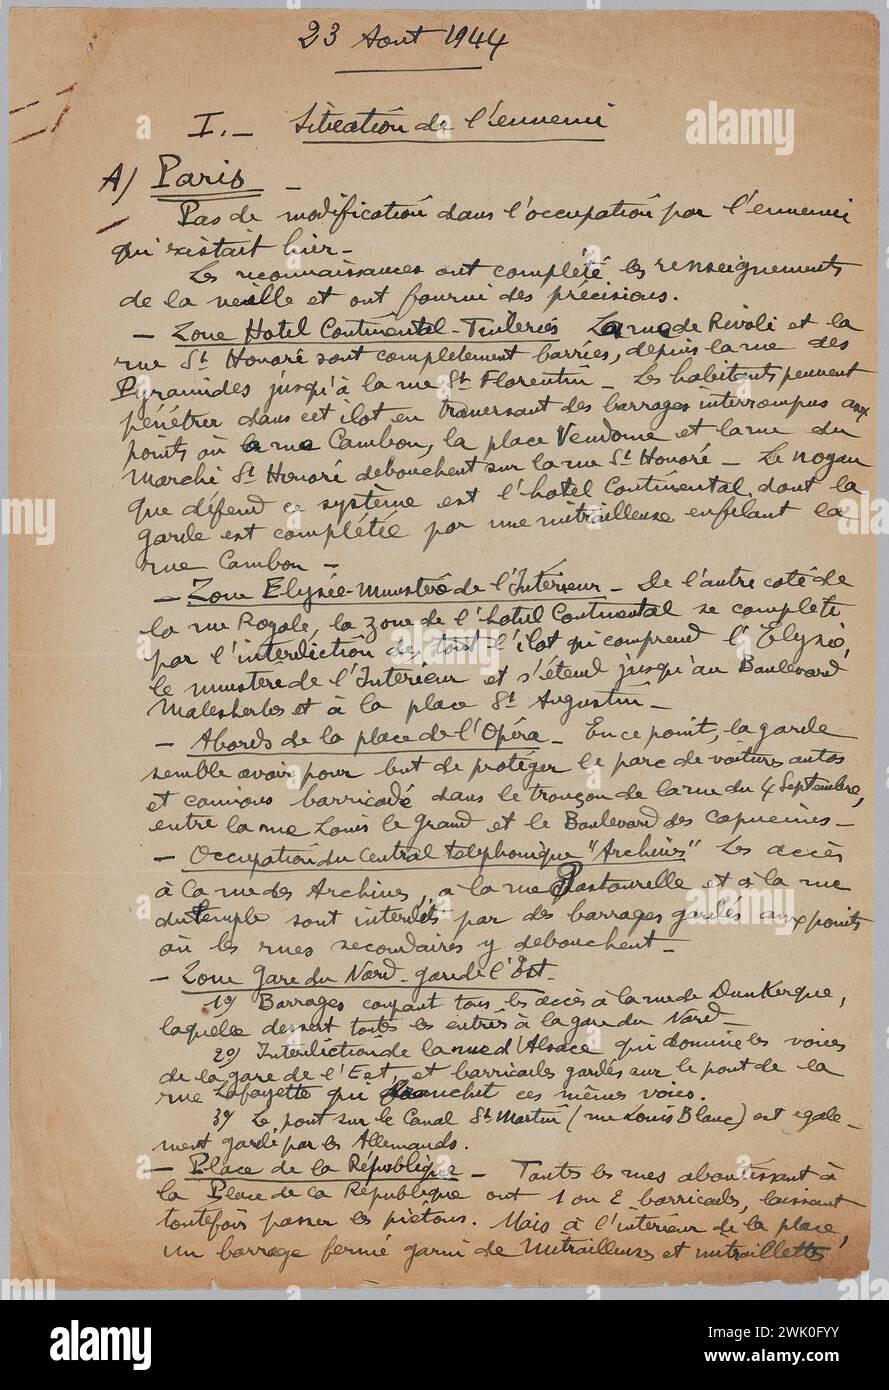 23 Aout 1944
I. — Situation de l'ennemi
A/ Paris —
Pas de modification dans l'occupation par l'ennemi
qui existait hier —
Les reconnaissances ont complété les renseignements
de la veille et ont fourni des précisions.
— Zone Hotel Continental - Tuileries La rue de Rivoli et la
rue St Honoré sont complètement barrées, depuis la rue des
Pyramides jusqu'à la rue St Florentin — Les habitants peuvent
pénétrer dans cet ilot en traversant des barrages interrompus aux
points où la rue Cambon, la place Vendome et la rue du
Marché St Honoré debouchent sur la rue St Honoré — Le noyau
que défend ce système est l'hotel Continental, dont la
garde est complétée par une mitrailleuse enfilant la
rue Cambon —
— Zone Elysée - Ministère de l'Intérieur — De l'autre coté de
la rue Royale, la zone de l'hotel Continental se complete
par l'interdiction de tout l'ilot qui comprend l'Elysée,
le ministère de l'Interieur et s'étend jusqu'au Boulevard
Malesherbes et à la place St Augustin —
— Abords de la place de l'Opéra — En ce point, la garde
semble avoir pour but de protéger le parc de voitures autos
et camions barricadé dans le tronçon de la rue du 4 Septembre,
entre la rue Louis le Grand et le Boulevard des Capucines —
— Occupation du Central telephonique "Archives" Les accès
à la rue des Archives, à la rue Pastourelle et à la rue
du temple sont interdits par des barrages gardés aux points
où les rues secondaires y debouchent —
— Zone Gare du Nord - gare de l'Est —
1°/ Barrages coupant tous les accès à la rue de Dunkerque,
laquelle dessert toutes les entrées à la gare du Nord —
2°/ Interdiction de la rue d'Alsace qui domine les voies
de la gare de l'Est, et barricades gardés sur le pont de la
rue Lafayette qui ces mêmes voies.
3°/ Le pont sur le Canal St Martin (rue Louis Blanc) est egale-
ment gardé par les Allemands.
— Place de la République — Toutes les rues aboutissant à
la Place de la République ont 1 ou 2 barricades, laissant
toutefois passer les piétons. Mais à l'intérieur de la place,
un barrage fermé garni de Mitrailleuses et mitraillettes
alamy
Image ID: 2WK0FYY
www.alamy.com